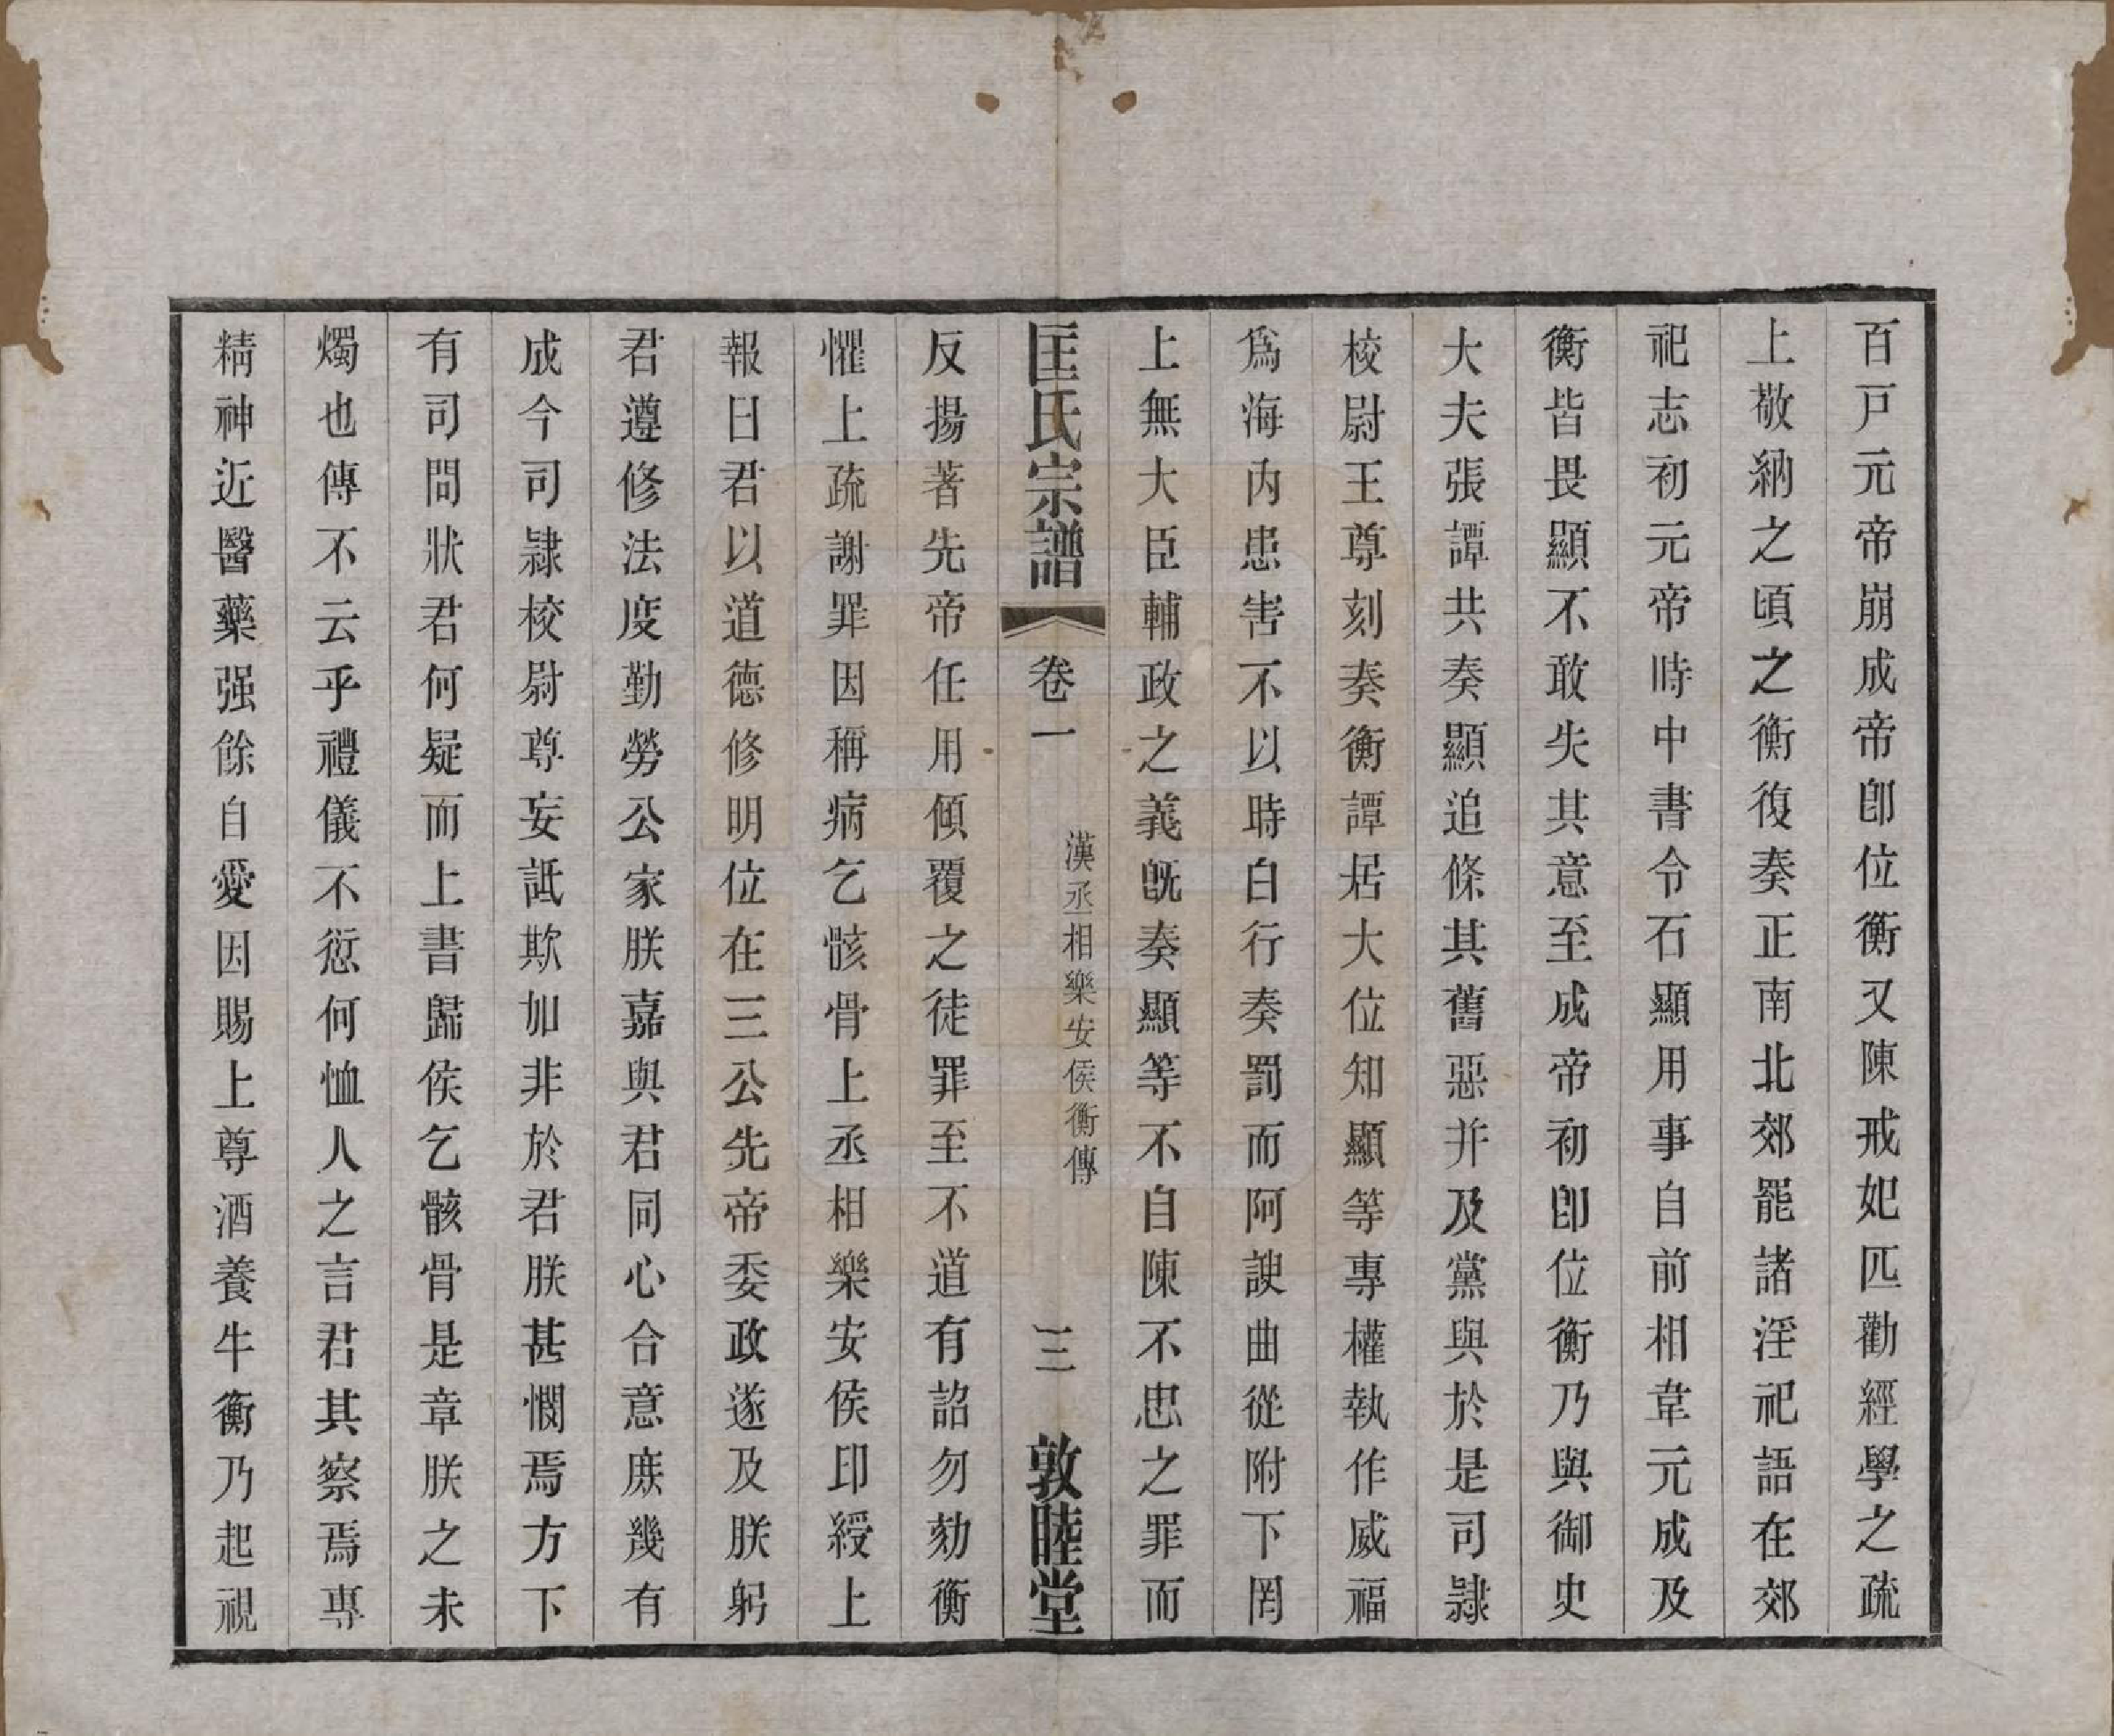 百戸元帝崩成帝卽位衡又陳戒妃匹勸經學之疏
上敬納之頃之衡復奏正南北郊罷諸淫祀語在郊
祀志初元帝時中書令石顯用事自前相韋元成及
衡皆畏顯不敢失其意至成帝初卽位衡乃與御史
大夫張譚共奏顯追條其舊惡并及黨與於是司隷
校尉王尊刻奏衡譚居大位知顯等專權執作威福
爲海內患害不以時白行奏罰而阿諛曲從附下罔
上無大臣輔政之義旣奏顯等不自陳不忠之罪而
匡氏宗譜
卷一
漢丞相樂安侯衡傳
三
敦睦堂
反揚著先帝任用傾覆之徒罪至不道有詔勿劾衡
懼上疏謝罪因稱病乞骸骨上丞相樂安侯印綬上
報曰君以道德修明位在三公先帝委政遂及朕躬
君遵修法度勤勞公家朕嘉與君同心合意庶幾有
成今司隷校尉尊妄詆欺加非於君朕甚憫焉方下
有司問狀君何疑而上書歸侯乞骸骨是章朕之未
燭也傳不云乎禮儀不愆何恤人之言君其察焉專
精神近醫藥强餘自愛因賜上尊酒養牛衡乃起視